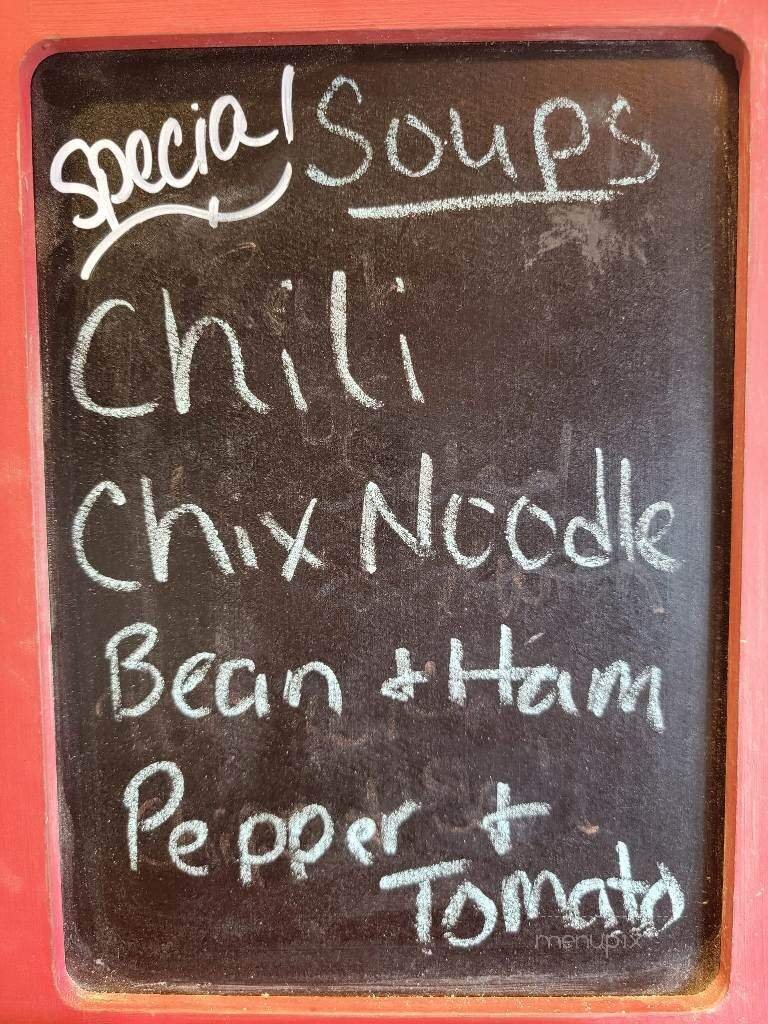 Special Soups
Chili
Chix Noodle
Bean + Ham
Pepper +
Tomato
menupix